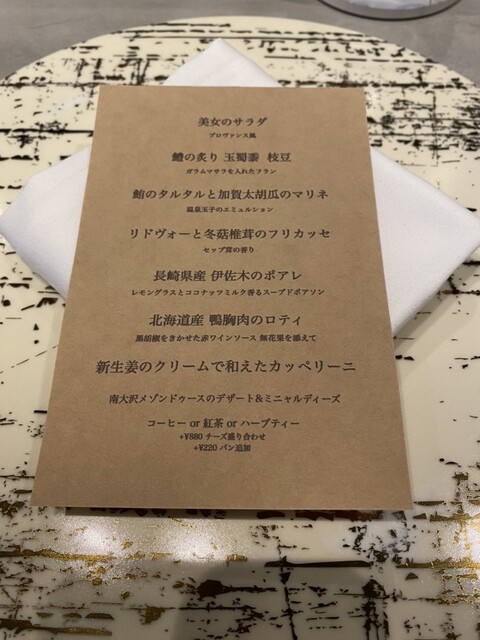 美女のサラダ
プロヴァンス風
鱧の炙り 玉蜀黍 枝豆
ガラムマサラを入れたフラン
鮪のタルタルと加賀太胡瓜のマリネ
温泉玉子のエミュルション
リドヴォーと冬菇椎茸のフリカッセ
セップ茸の香り
長崎県産 伊佐木のポアレ
レモングラスとココナッツミルク香るスープドポアソン
北海道産 鴨胸肉のロティ
黒胡椒をきかせた赤ワインソース 無花果を添えて
新生姜のクリームで和えたカッペリーニ
南大沢メゾンドゥースのデザート&ミニャルディーズ
コーヒー or 紅茶 or ハーブティー
+¥880 チーズ盛り合わせ
+¥220 パン追加